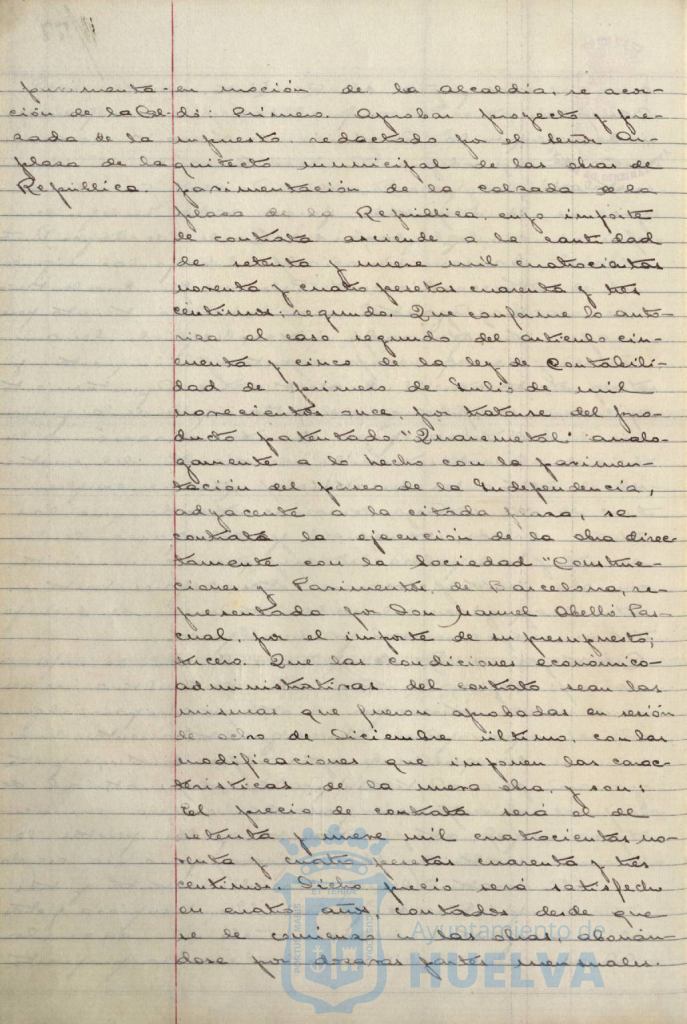 pavimenta-
ción de la Cal-
zada de la
plaza de la
República.
en moción de la Alcaldía, se acor-
dó: Primero. Aprobar proyecto y pre-
supuesto redactado por el señor Ar-
quitecto municipal de las obras de
pavimentación de la calzada de la
plaza de la República, cuyo importe
de contrata asciende a la cantidad
de setenta y nueve mil cuatrocientas
noventa y cuatro pesetas cuarenta y tres
céntimos; segundo. Que conforme lo auto-
riza el caso segundo del artículo cin-
cuenta y cinco de la ley de Contabili-
dad de primero de Julio de mil
novecientos once, por tratarse del pro-
ducto patentado "Quaremetal" analo-
gamente a lo hecho con la pavimen-
tación del paseo de la Independencia,
adyacente a la citada plaza, se
contrata la ejecución de la obra direc-
tamente con la Sociedad "Construc-
ciones y Pavimentos, de Barcelona, re-
presentada por Don Manuel Abelló Pas-
cual, por el importe de su presupuesto;
tercero. Que las condiciones económico-
administrativas del contrato sean las
mismas que fueron aprobadas en sesión
de ocho de Diciembre último, con las
modificaciones que imponen las carac-
terísticas de la nueva obra, y son:
El precio de contrata será el de
setenta y nueve mil cuatrocientas no-
venta y cuatro pesetas cuarenta y tres
centimos. Dicho precio será satisfecho
en cuatro años, contados desde que
se de comienzo a las obras, abonán-
dose por dozavas partes mensuales.
Ayuntamiento de
HUELVA